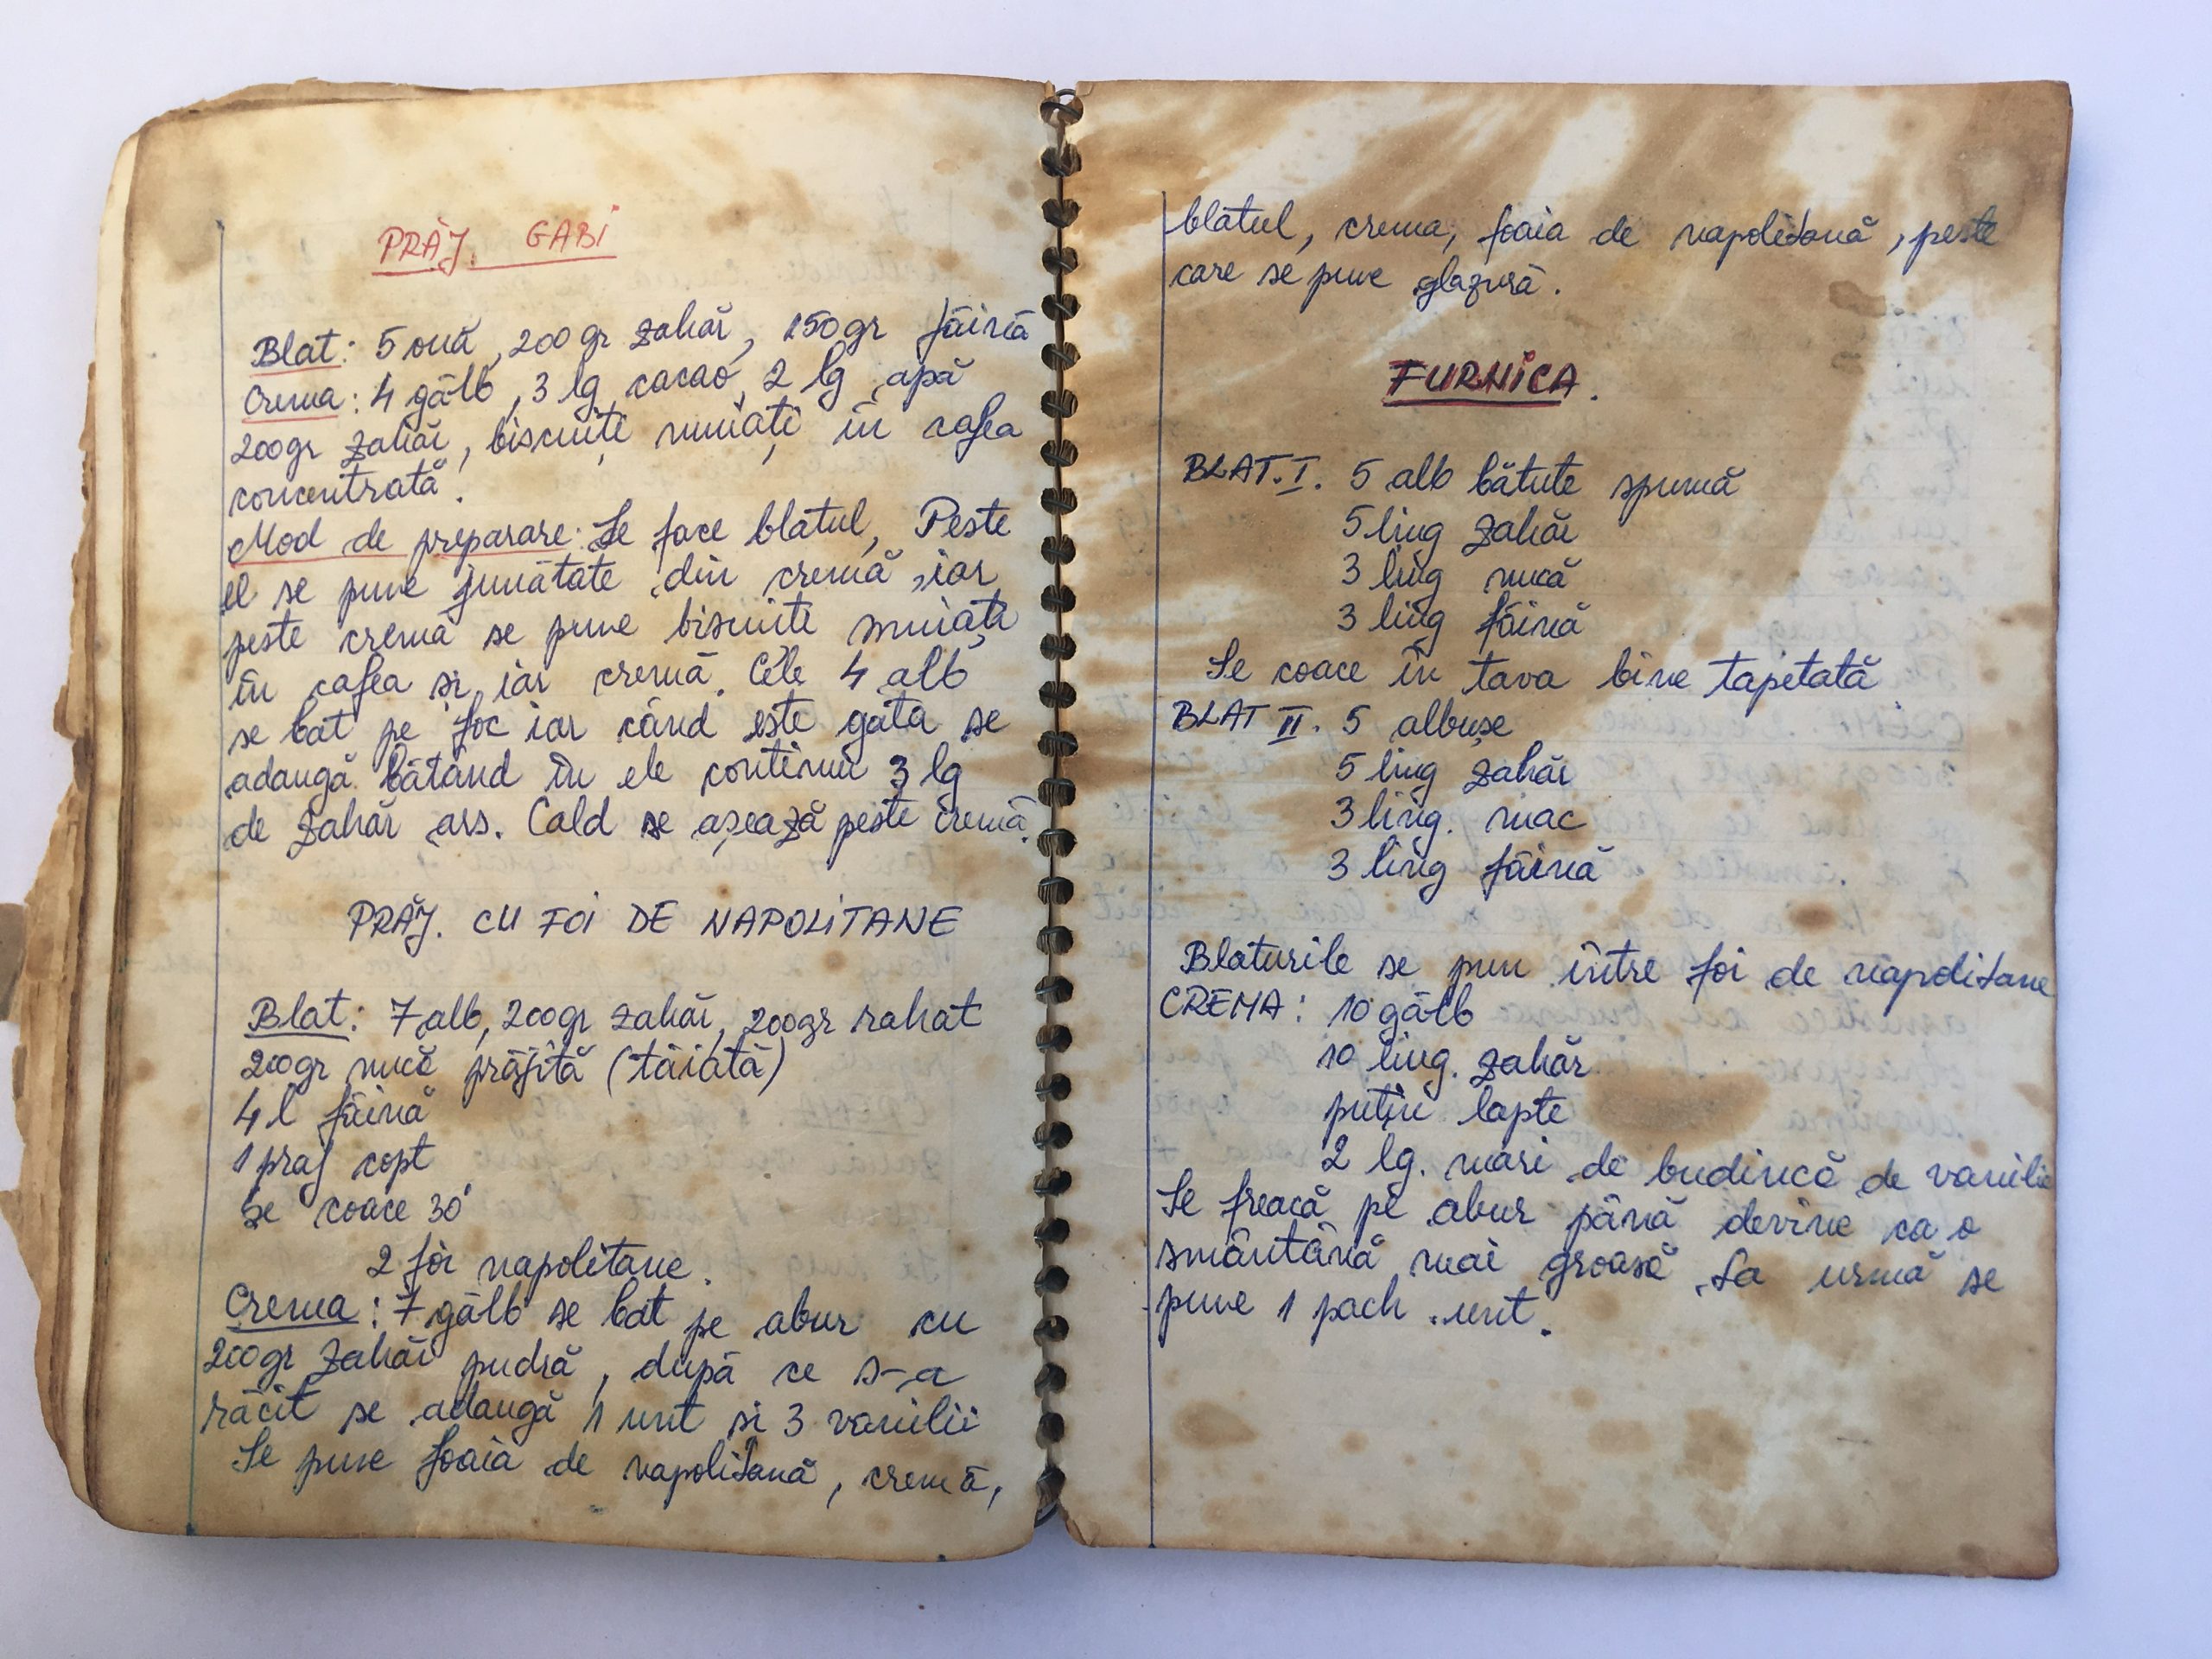 PRĂJ. GABI
Blat: 5 ouă, 200 gr zahăr, 150 gr făină
Crema: 4 gălb, 3 lg cacao, 2 lg apă
200gr zahăr, biscuiți muiați în cafea
concentrată.
Mod de preparare: Se face blatul, Peste
el se pune jumătate din cremă, iar
peste cremă se pune biscuite muiați
în cafea si iar cremă. Cele 4 alb
se bat pe foc iar când este gata se
adaugă bătând în ele continuu 3 lg
de zahăr ars. Cald se așează peste cremă.
PRĂJ. CU FOI DE NAPOLITANE
Blat: 7 alb, 200gr zahăr, 200gr rahat
200gr nucă prăjită (tăiată)
4 l făină
1 praf copt
Se coace 30'
2 foi napolitane.
Crema: 7 gălb se bat pe abur cu
200gr zahăr pudră, după ce s-a
răcit se adaugă 1 unt si 3 vanilii
Se pune foaia de napolitană, cremă,
blatul, crema, foaia de napolitană, peste
care se pune glazură.
FURNICA.
BLAT. I. 5 alb bătute spumă
5 ling zahăr
3 ling nucă
3 ling făină
Se coace în tava bine tapetată
BLAT II. 5 albușe
5 ling zahăr
3 ling. mac
3 ling făină
Blaturile se pun între foi de napolitane
CREMA: 10 gălb
10 ling. zahăr
puțin lapte
2 lg. mari de budincă de vanilie
Se freacă pe abur până devine ca o
smântână mai groasă. La urmă se
pune 1 pach. unt.